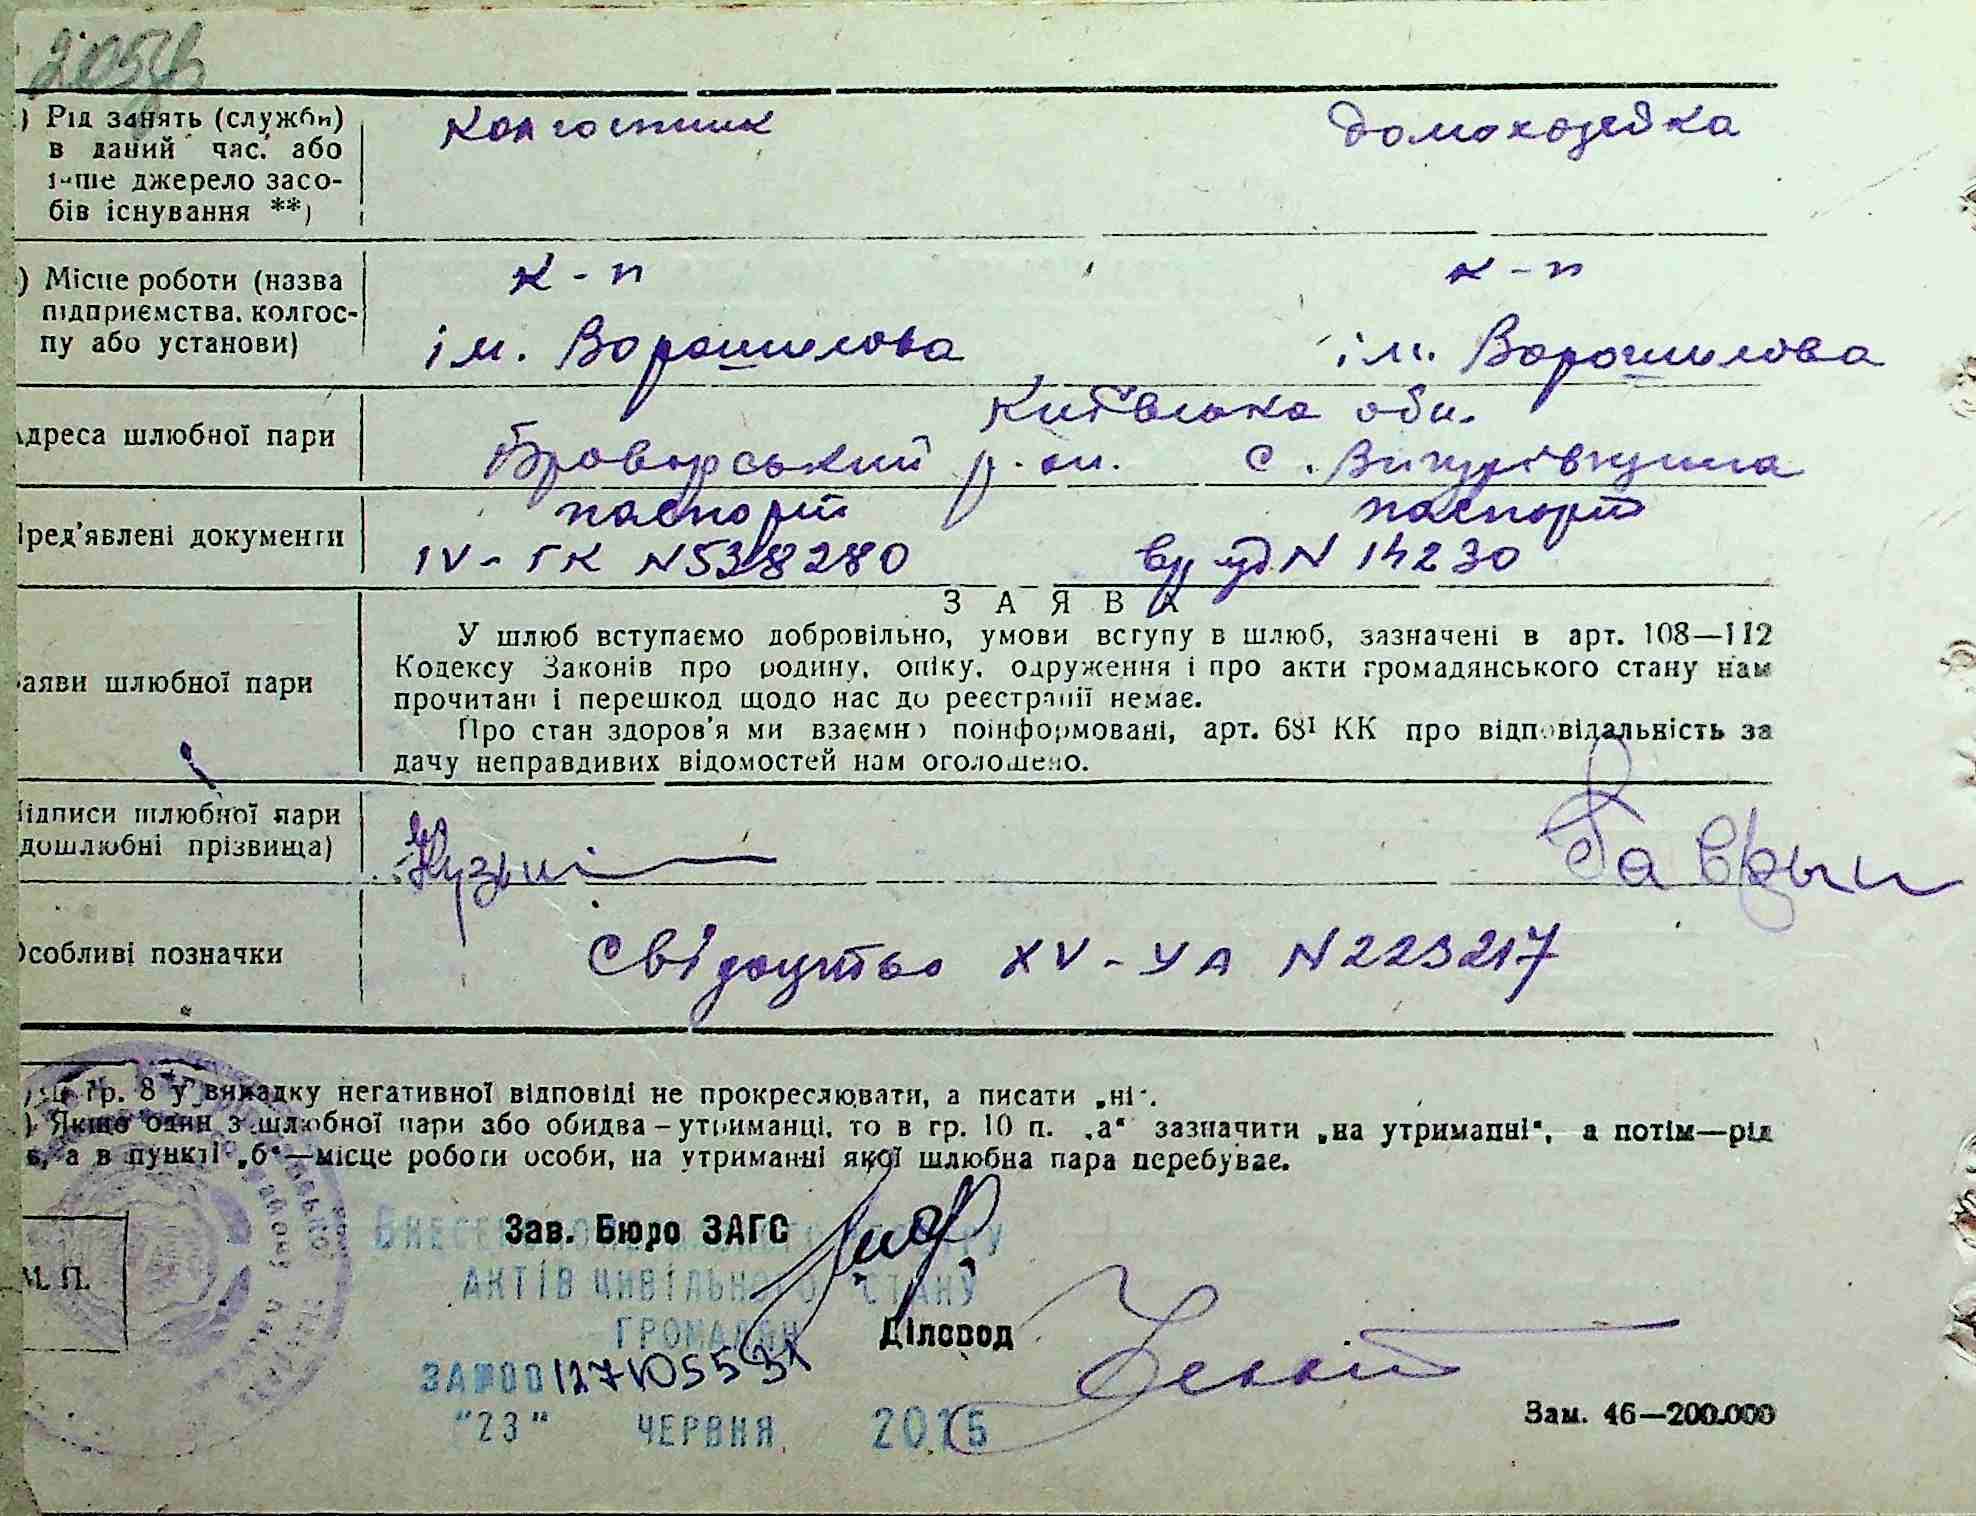 ) Рід занять (служби) в даний час, або інше джерело засобів існування **) колгоспник домохозейка
) Місце роботи (назва підприємства, колгоспу або установи) к-п ім. Ворошилова к-п ім. Ворошилова
Київська обл.
дреса шлюбної пари Броварський р.он. с. Вигурівщина
паспорт паспорт
ред'явлені документи IV-ГК N538280 N 14230
ЗАЯВА
У шлюб вступаємо добровільно, умови вступу в шлюб, зазначені в арт. 108—112
Кодексу Законів про родину, опіку, одруження і про акти громадянського стану нам
прочитані і перешкод щодо нас до реєстрації немає.
Про стан здоров'я ми взаємно поінформовані, арт. 68¹ КК про відповідальність за
дачу неправдивих відомостей нам оголошено.
аяви шлюбної пари
ідписи шлюбної пари
(дошлюбні прізвища)
собливі позначки Свідоцтво XV-УА N223217
гр. 8 у випадку негативної відповіді не прокреслювати, а писати „ні".
) Якщо один з шлюбної пари або обидва – утриманці, то в гр. 10 п. „а" зазначити „на утриманні", а потім—рід
, а в пункті „б"—місце роботи особи, на утриманні якої шлюбна пара перебуває.
Зав. Бюро ЗАГС
ВНЕСЕНО
АКТІВ ЦИВІЛЬНОГО СТАНУ
ГРОМАДЯН
М. П.
Діловод
ЗА №00127105531
"23" ЧЕРВНЯ 2015
Зам. 46—200.000